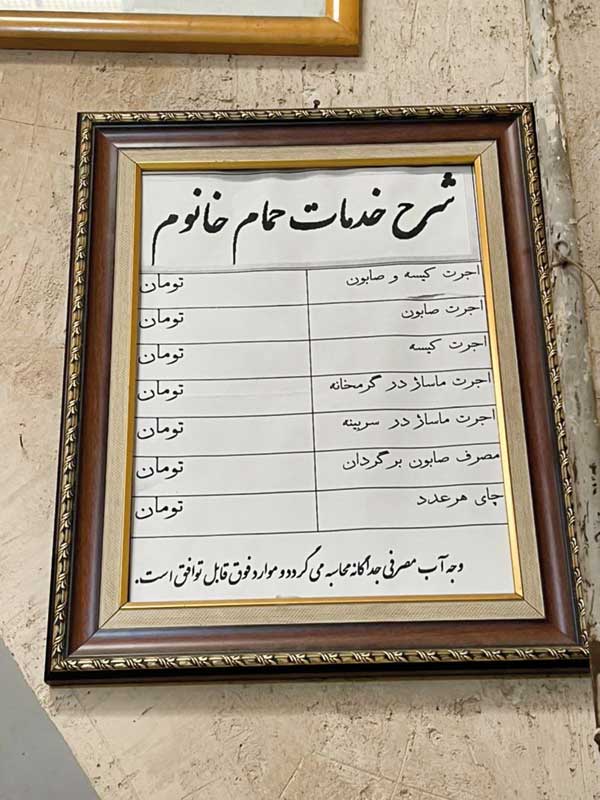 شرح خدمات حمام خانوم
اجرت کیسه و صابون تومان
اجرت صابون تومان
اجرت کیسه تومان
اجرت ماساژ در گرمخانه تومان
اجرت ماساژ در سربینه تومان
مصرف صابون برگردان تومان
چای هر عدد تومان
وجه آب مصرفی جداگانه محاسبه می گردد و موارد فوق قابل توافق است.